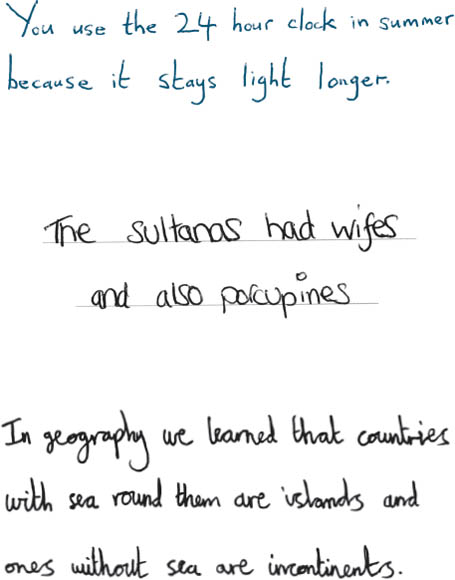 You use the 24 hour clock in summer
because it stays light longer.
The sultanas had wifes
and also porcupines
In geography we learned that countries
with sea round them are islands and
ones without sea are incontinents.